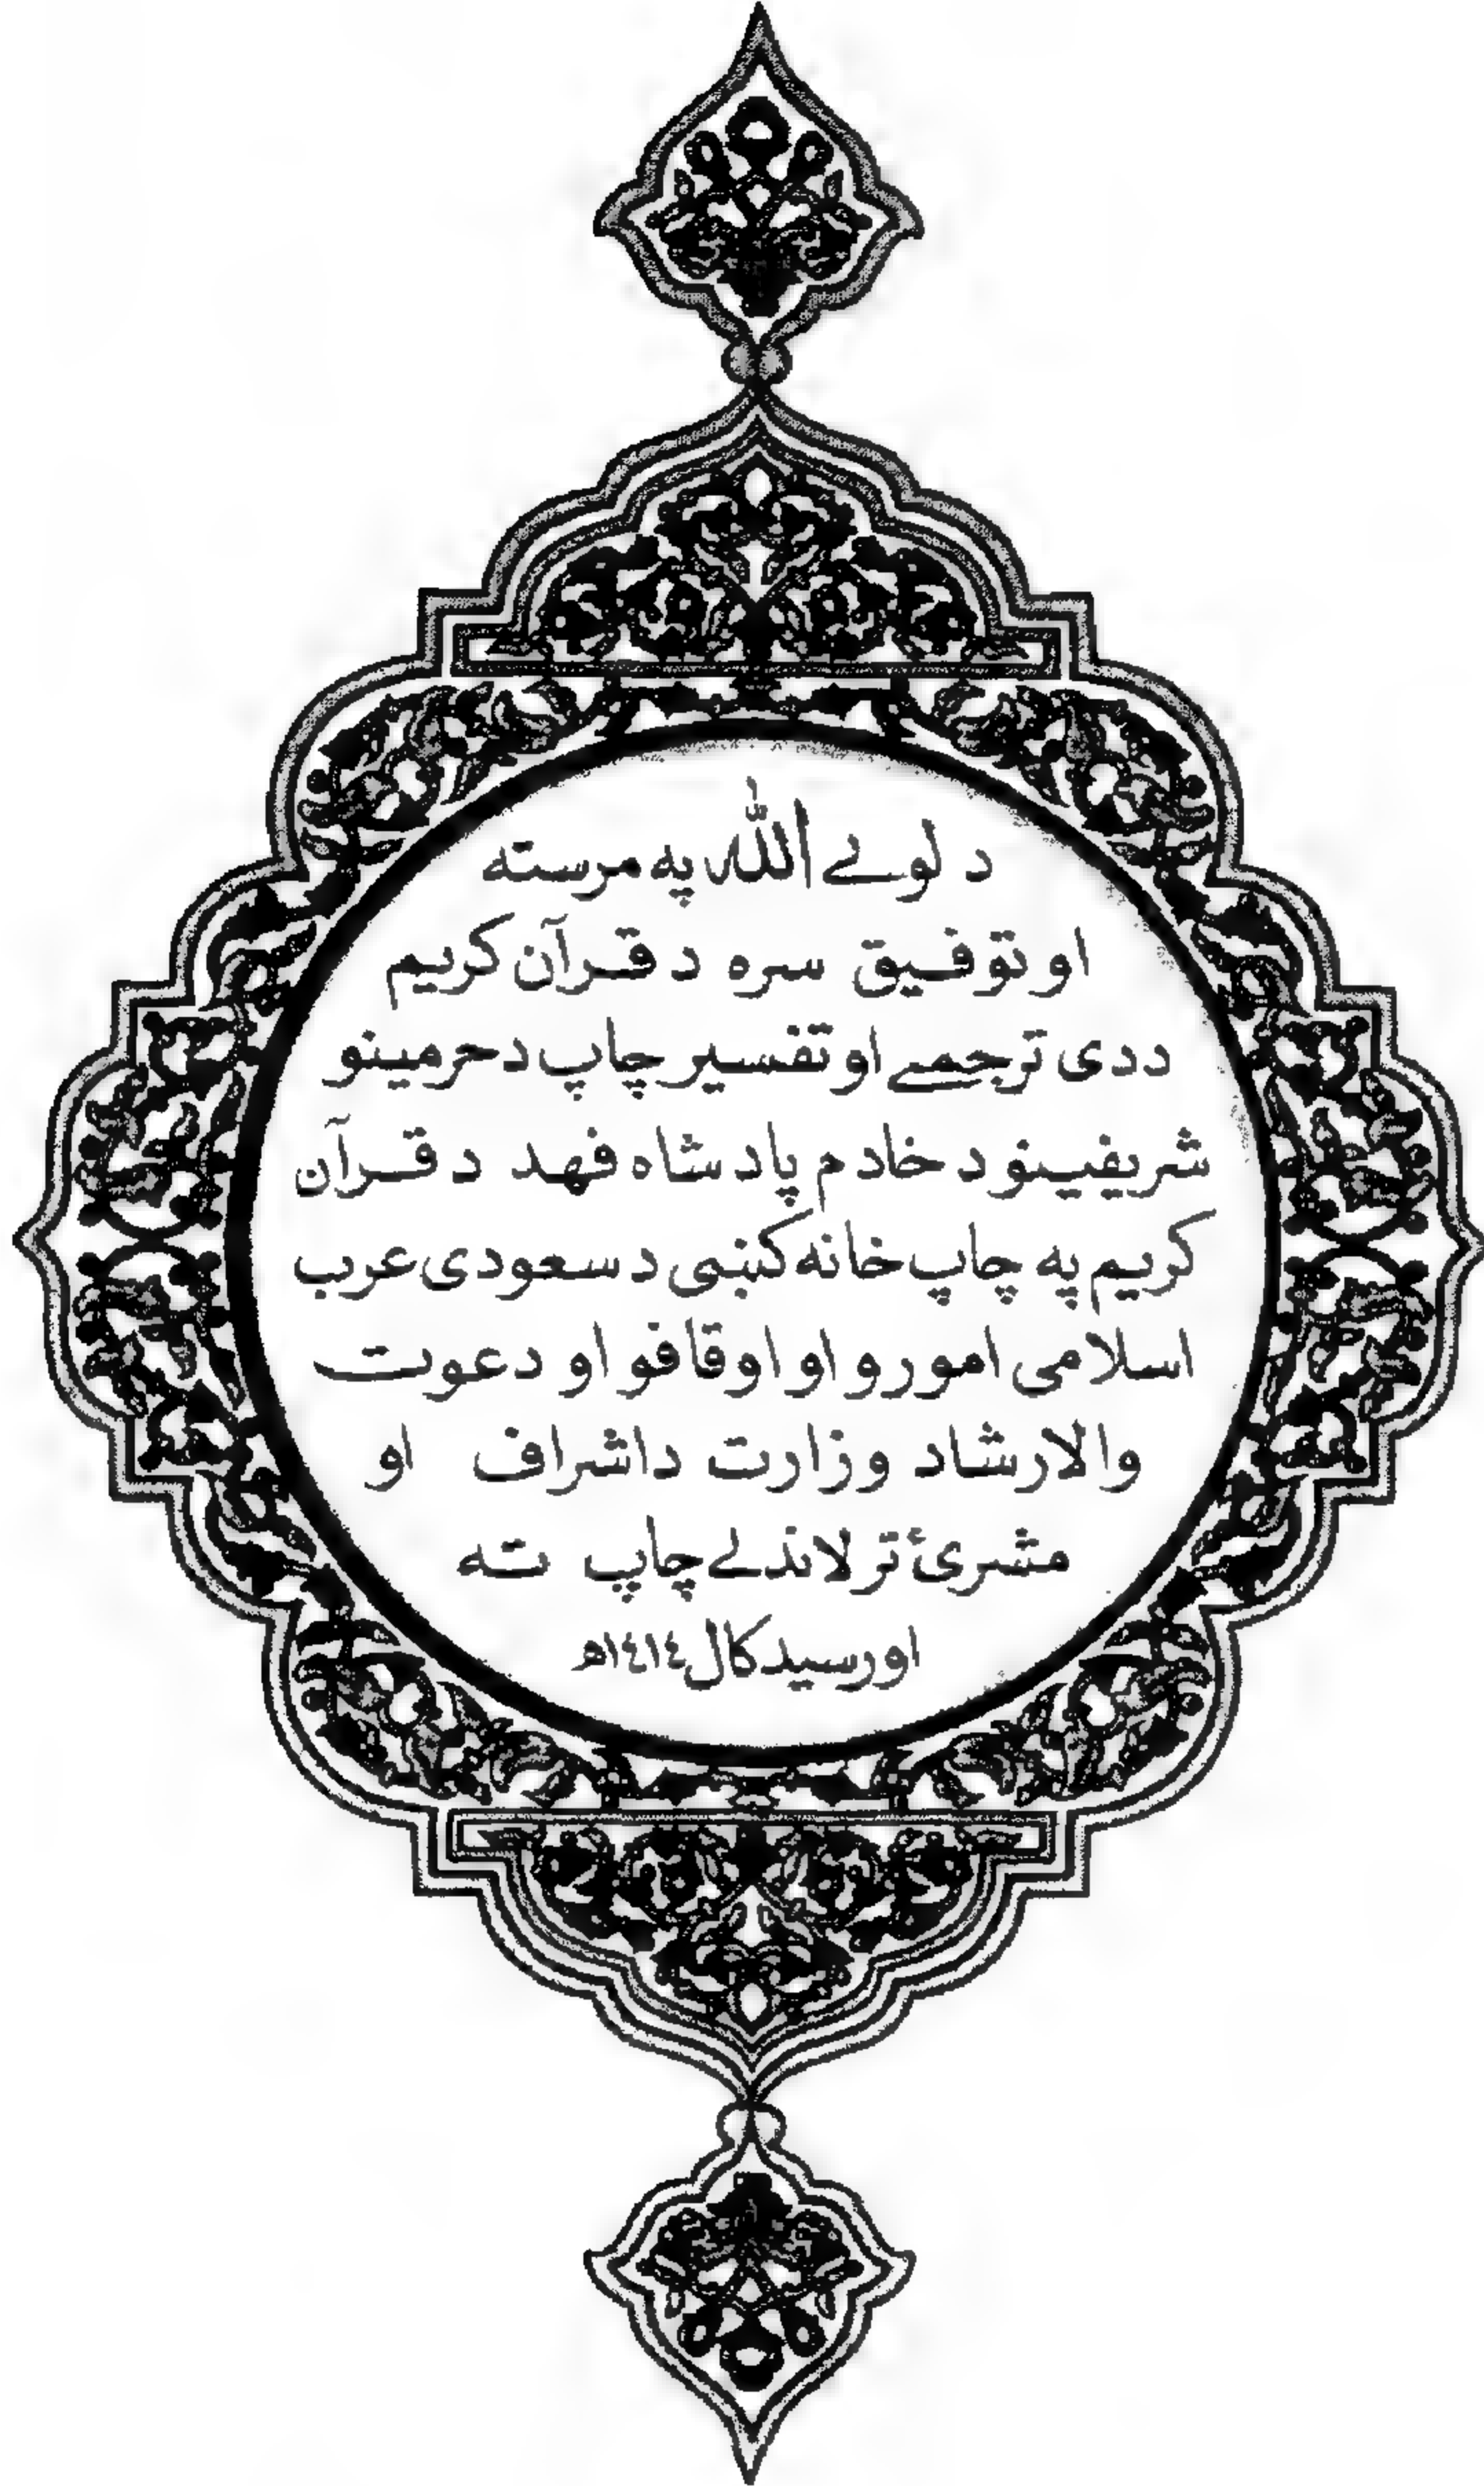 د لوے الله په مرسته
او توفیق سره د قرآن کریم
ددی ترجمے او تفسیر چاپ د حرمینو
شریفینو د خادم پادشاه فهد د قرآن
کریم په چاپ خانه کښی د سعودی عرب
اسلامی امورو او اوقافو او دعوت
والارشاد وزارت داشراف او
مشرئ تر لاندلے چاپ ته
اورسید کال ١٤١٤ه